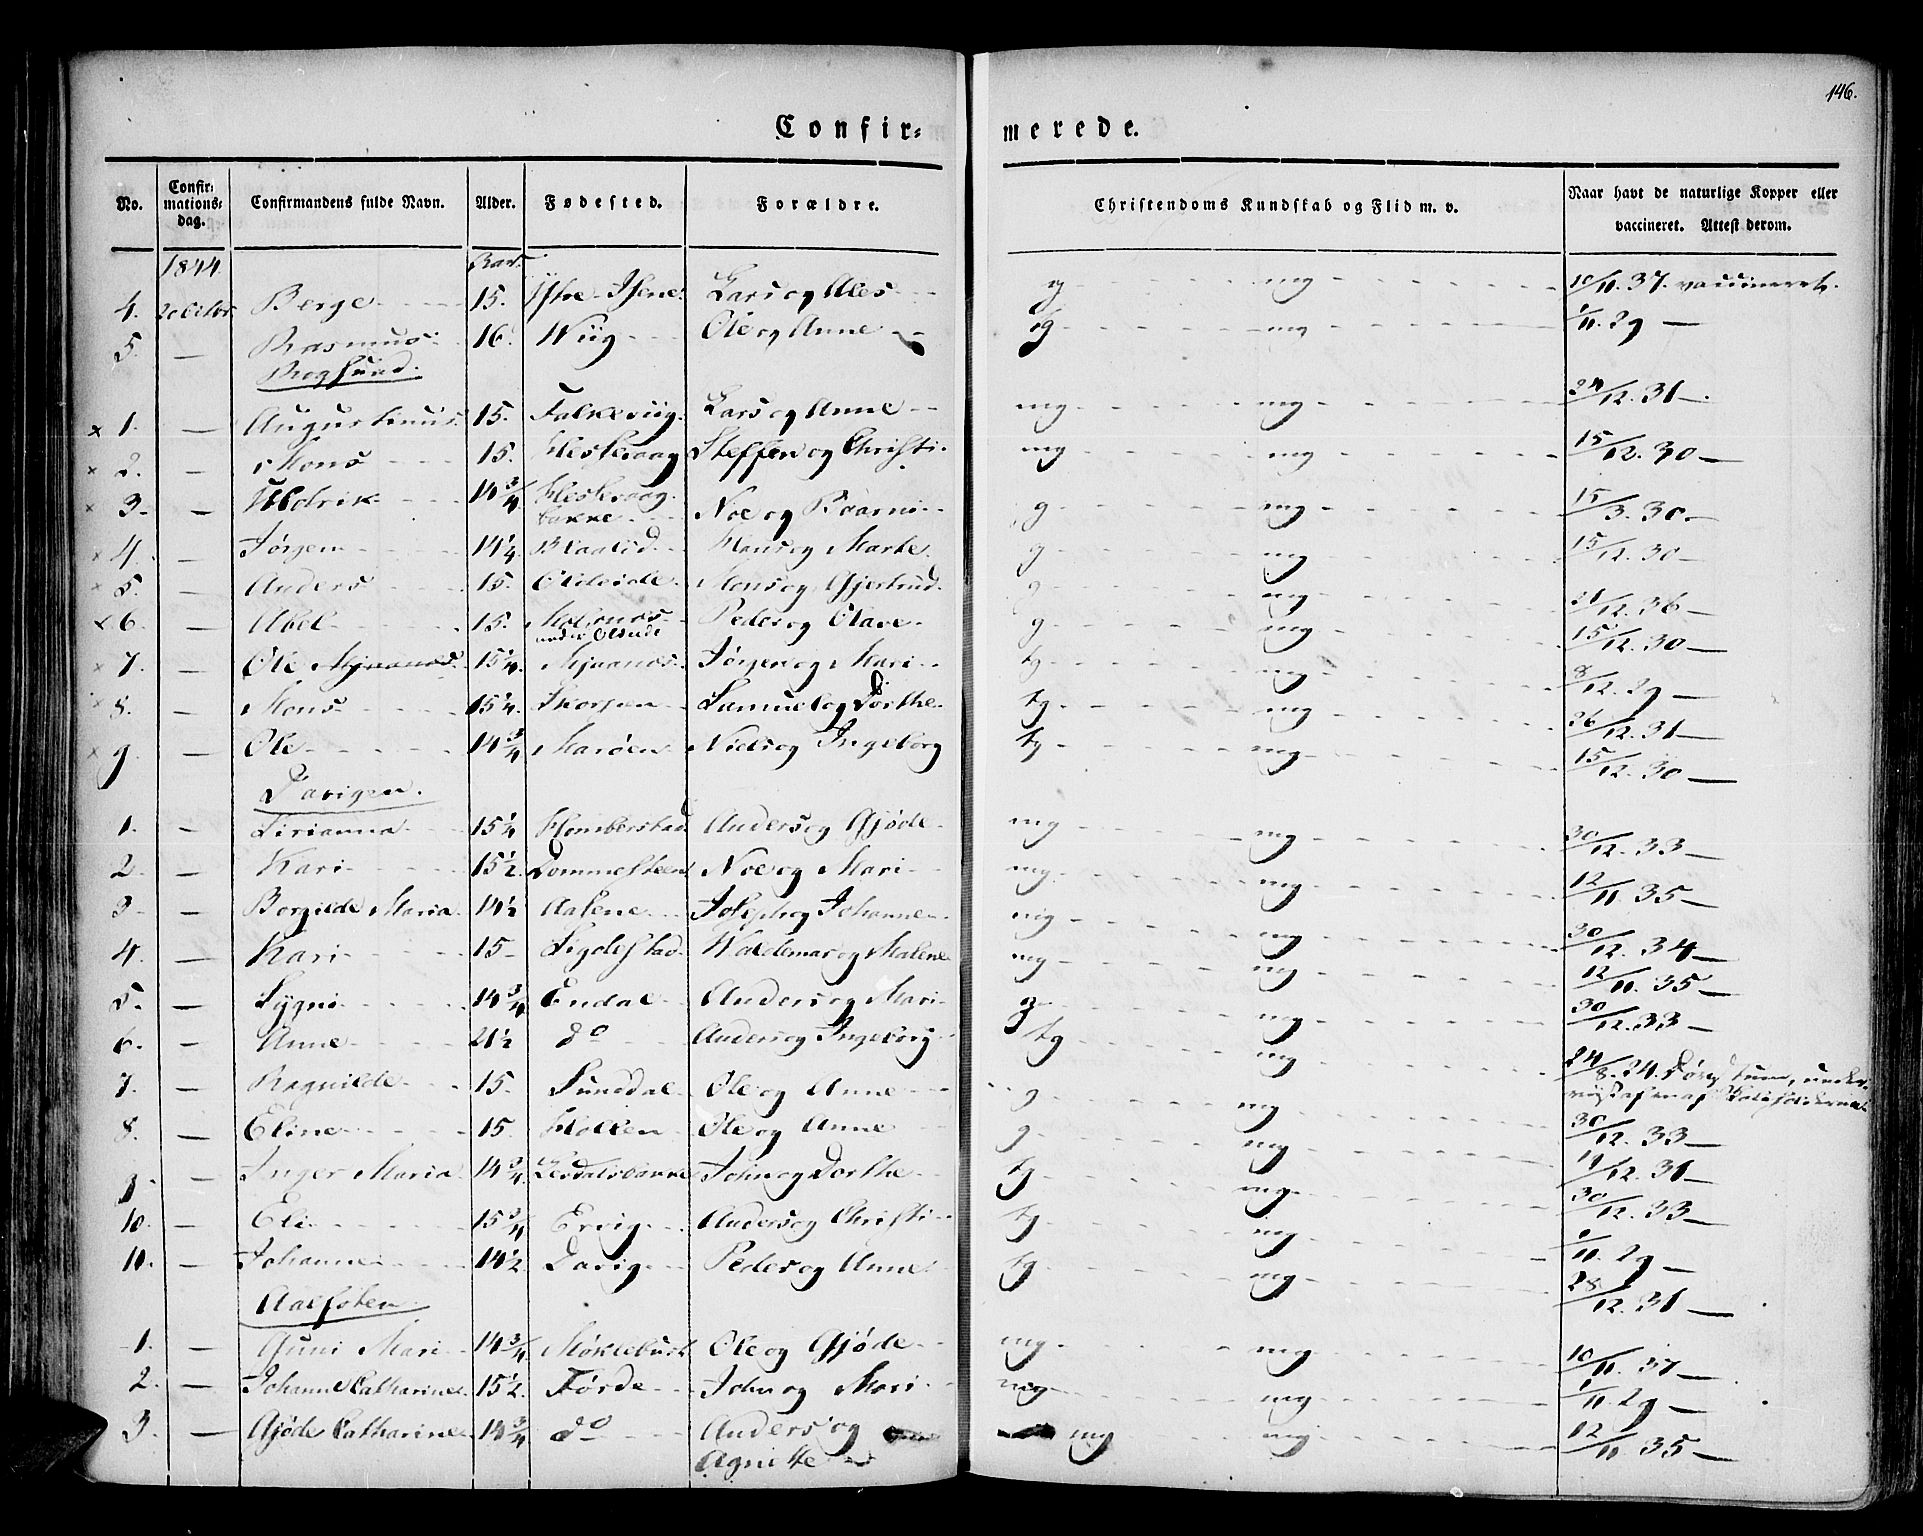 146.
Confir= merede.
No. Confir= mations= dag. Confirmandens fulde Navn. Alder. Fødested. Forældre. Christendoms Kundskab og Flid m. v. Naar havt de naturlige Kopper eller vaccineret. Attest derom.
1844
4. Berge 15. Ytre Isene Lars og Ales g mg 10/11. 37. vaccineret.
5. — Rasmus 16. Wiig Ole og Anne tg mg 1/11. 29 —
Rogsund.
x 1. — Augustinus 15. Falkeviig Lars og Anne mg mg 24/12. 31 —.
x 2. — Mons 15. Hestevaag Steffen og Christi. mg mg 15/12. 30 —
x 3. — Uldrik 14 3/4 Hestevaag bakke Noe og Raarni g mg 15/3. 30 —
x 4. — Jørgen 14 1/4 Blaalid Hans og Marte g mg 15/12. 30 —
x 5. — Anders 15. Oldeide Mons og Gjertrud g mg 21/12. 36 —
x 6. — Abel 15. under Oldeide Peder og Olave g mg 15/12. 30 —
x 7. — Ole Myranæs 15 1/4 Myranæs Jørgen og Mari tg mg 8/12. 29 —
x 8. — Mons 15 1/4. Skorpen Samuel og Dorthe tg mg 26/12. 31 —
x 9 — Ole 14 3/4 Marøen Niels og Ingeborg tg mg 15/12. 30 —
Davigen.
1. — Sirianna 15 1/4 Homborstad Anders og Gjøde mg mg 30/12. 33 —
2. — Kari 15 1/2. Dommesteen Noe og Mari mg mg 12/11. 35 —
3 — Borgilde Maria 14 1/2 Aalene Joseph og Johanne mg mg 30/12. 34 —
4. — Kari 15 — Sigdestad Waldemar og Malene mg mg 12/11. 35 —
5. — Sygni 14 3/4 Endal Anders og Mari g mg 30/12. 33 —
6. — Anne 21 1/2 do Anders og Ingeborg tg mg 24/8. 24.
7. — Ragnilde 15. Sunddal Ole og Anne g mg 30/12. 33 —
8. — Eline 15. Hollen Ole og Anne g mg 19/12. 31 —
9. — Inger Maria 14 3/4 Lesdalsbakke John og Dorthe tg mg 30/12. 33 —
10. — Eli 15 3/4 Ervig Anders og Christi tg mg 1/11. 29 —
10. — Johanne 14 1/2 Davig Peder og Anne tg mg 28/12. 31 —
Aalfoten
1. — Guni Mari 14 3/4 Møklebust Ole og Gjøde mg mg 10/11. 37 —
2. — Johanne Catharine 15 1/2. Førde John og Mari mg mg 1/11. 29 —
3. — Gjøde Catharine 14 3/4 do Anders og Agnitte mg mg 12/11. 35 —